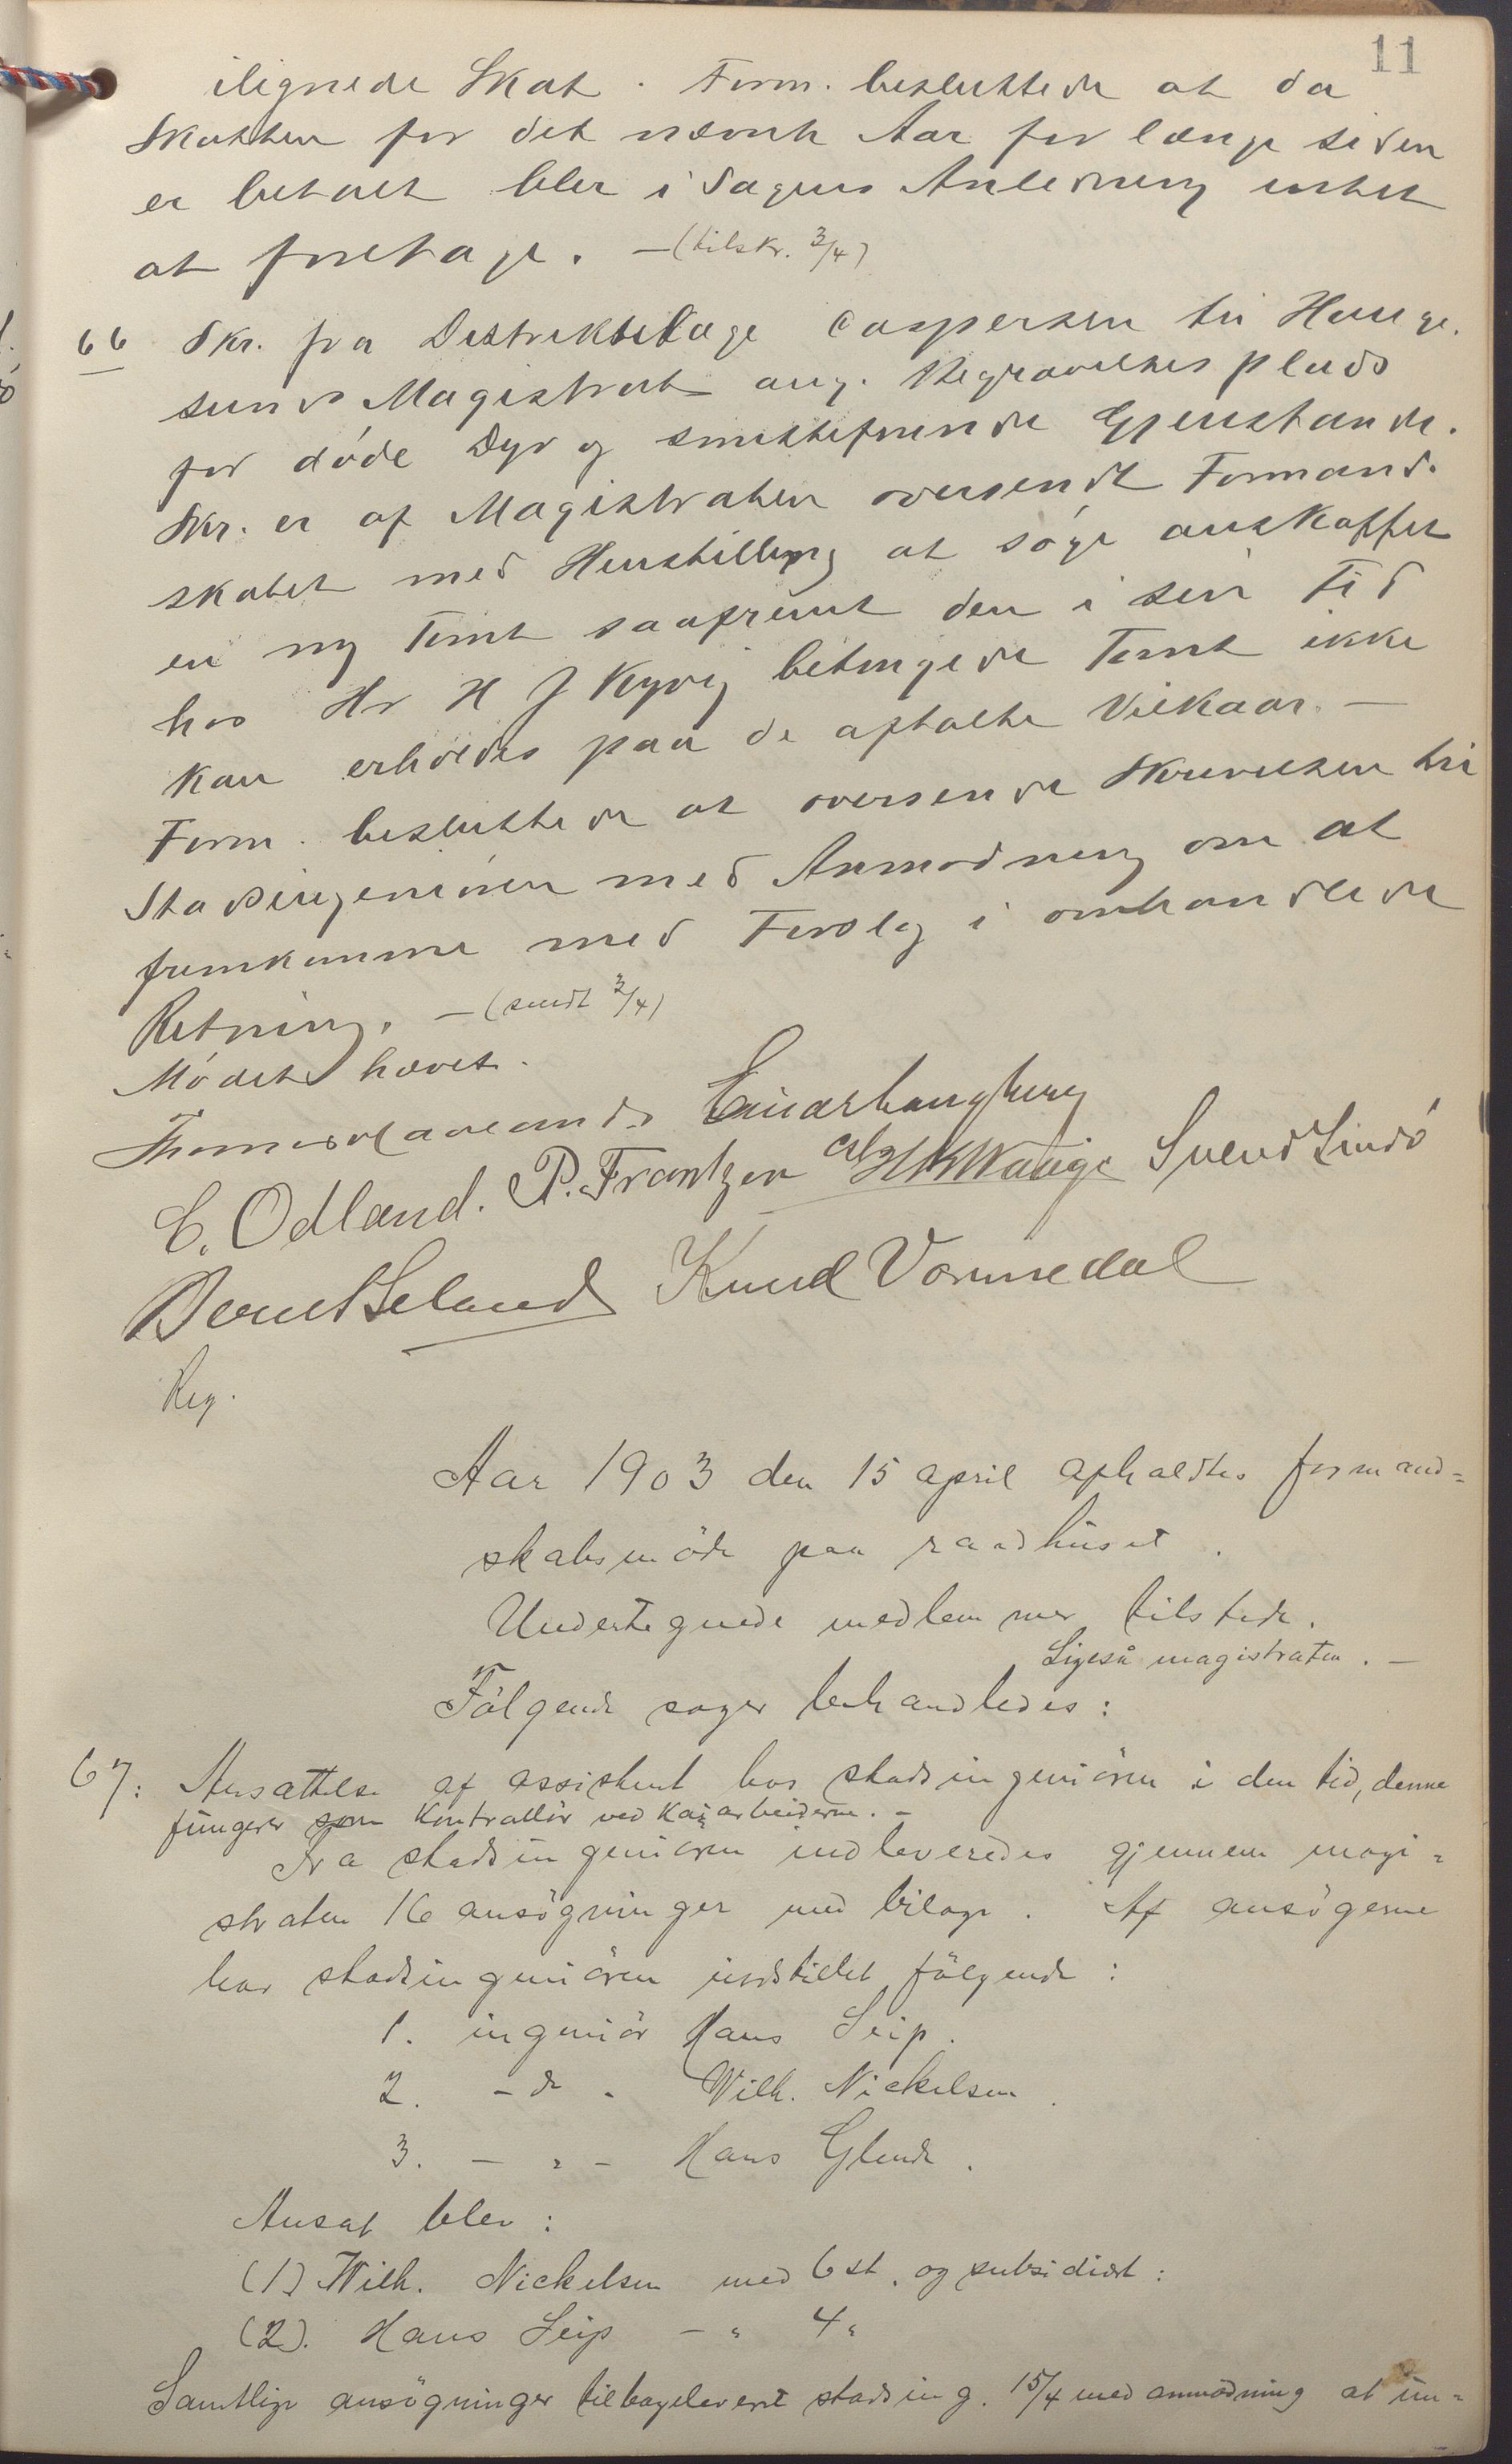 11
ilignede Skat. Form. besluttede at da
Skatten for det nævnte Aar for længe siden
er betalt blev i Sagens Anledning intet
at foretage. — (tilskr. 3/4)
66 Skr. fra Distriktslæge Caspersen til Hauge-
sunds Magistrat ang. Begravelsesplads
for døde Dyr og smitteførende Gjenstande.
Skr. er af Magistraten oversendt Formand-
skabet med Henstilling at søge anskaffet
en ny Tomt saafremt den i sin Tid
hos Hr H J Kyvig betingede Tomt ikke
kan erholdes paa de aftalte Vilkaar. —
Form. besluttede at oversende Skrivelsen til
Stadsingeniøren med Anmodning om at
fremkomme med Forslag i omhandlede
Retning. — (sendt 3/4)
Mødet hævet.
Einar Haugberg
E. Odland. P. Frantzen Svend Lindø
Bernt Seland Knud Vormedal
Reg.
Aar 1903 den 15 april afholdtes formand=
skabsmöde paa raadhuset.
Undertegnede medlemmer tilstede.
Ligeså magistraten. —
Fölgende sager behandledes:
67: Ansættelse af assistent hos stadsingeniören i den tid, denne
fungerer som kontrollör ved kaiarbeiderne. —
Fra stadsingeniören indleveredes gjennem magi=
straten 16 ansögninger med bilage. Af ansögerne
har stadsingeniören indstillet fölgende:
1. ingeniör Hans Seip.
2. - do - Wilh. Nickelsen.
3. — " — Hans Glende.
Ansat blev:
(1) Wilh. Nickelsen med 6 st. og subsidiært:
(2). Hans Seip — " 4 "
Samtlige ansögninger tilbageleveret stadsing. 15/4 med anmodning at un=